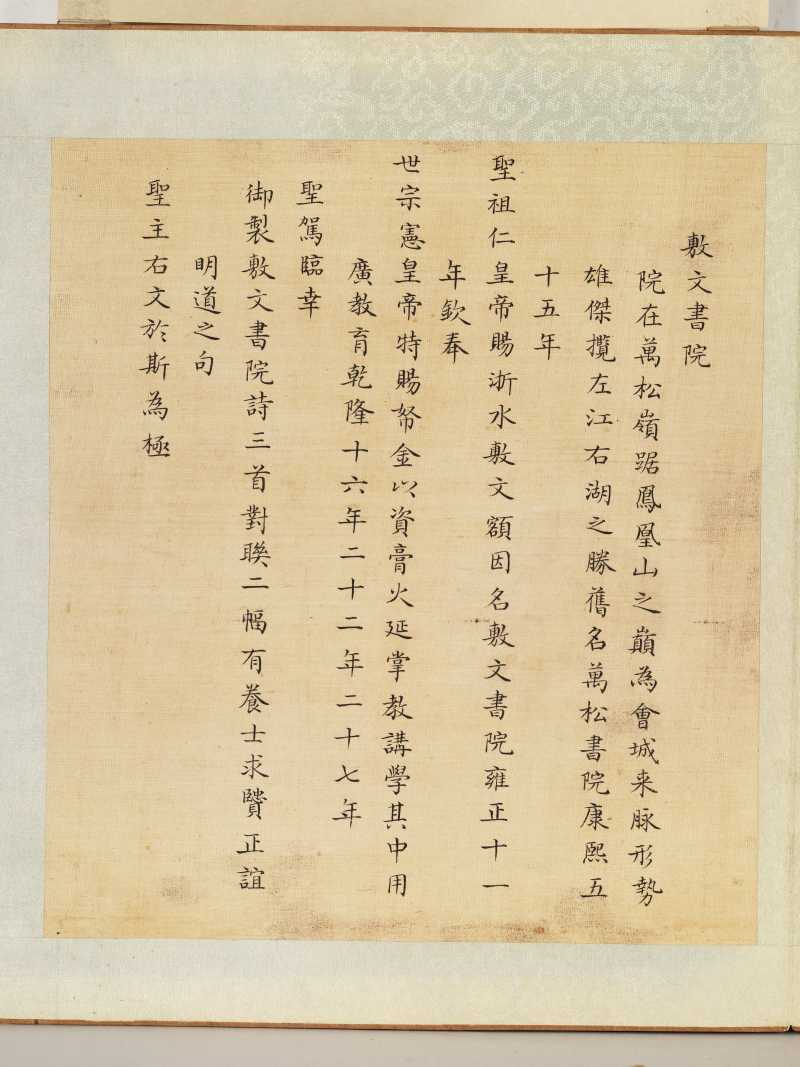 敷文書院
院在萬松嶺踞鳳凰山之巔為會城来脉形勢
雄傑攬左江右湖之勝舊名萬松書院康熙五
十五年
聖祖仁皇帝賜浙水敷文額因名敷文書院雍正十一
年欽奉
世宗憲皇帝特賜帑金以資膏火延掌教講學其中用
廣教育乾隆十六年二十二年二十七年
聖駕臨幸
御製敷文書院詩三首對聯二幅有養士求賢正誼
明道之句
聖主右文於斯為極